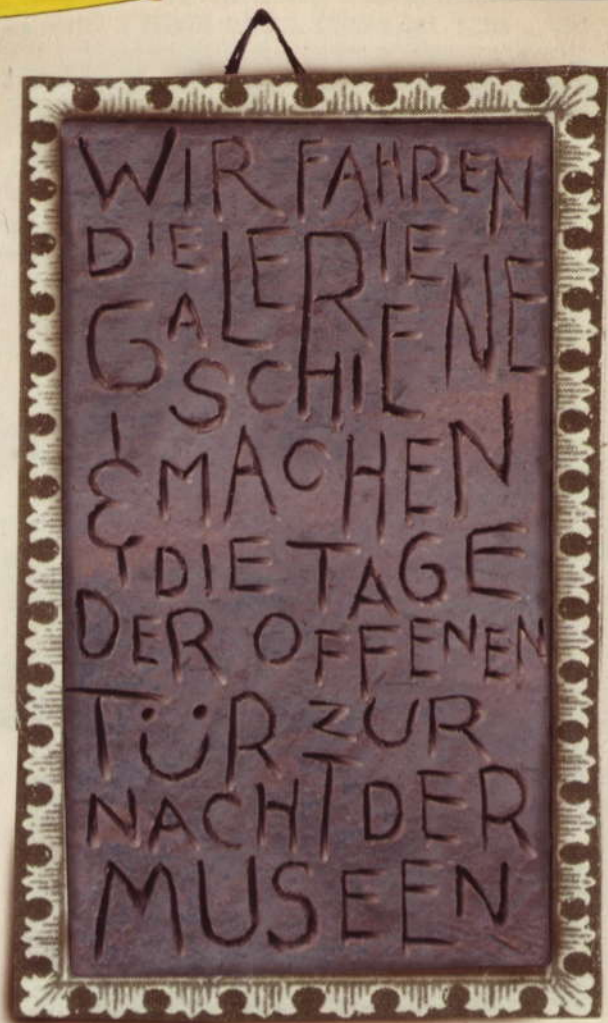 WIR FAHREN
DIE GALERIE
SCHIENE
& MACHEN
DIE TAGE
DER OFFENEN
TÜR ZUR
NACHT DER
MUSEEN